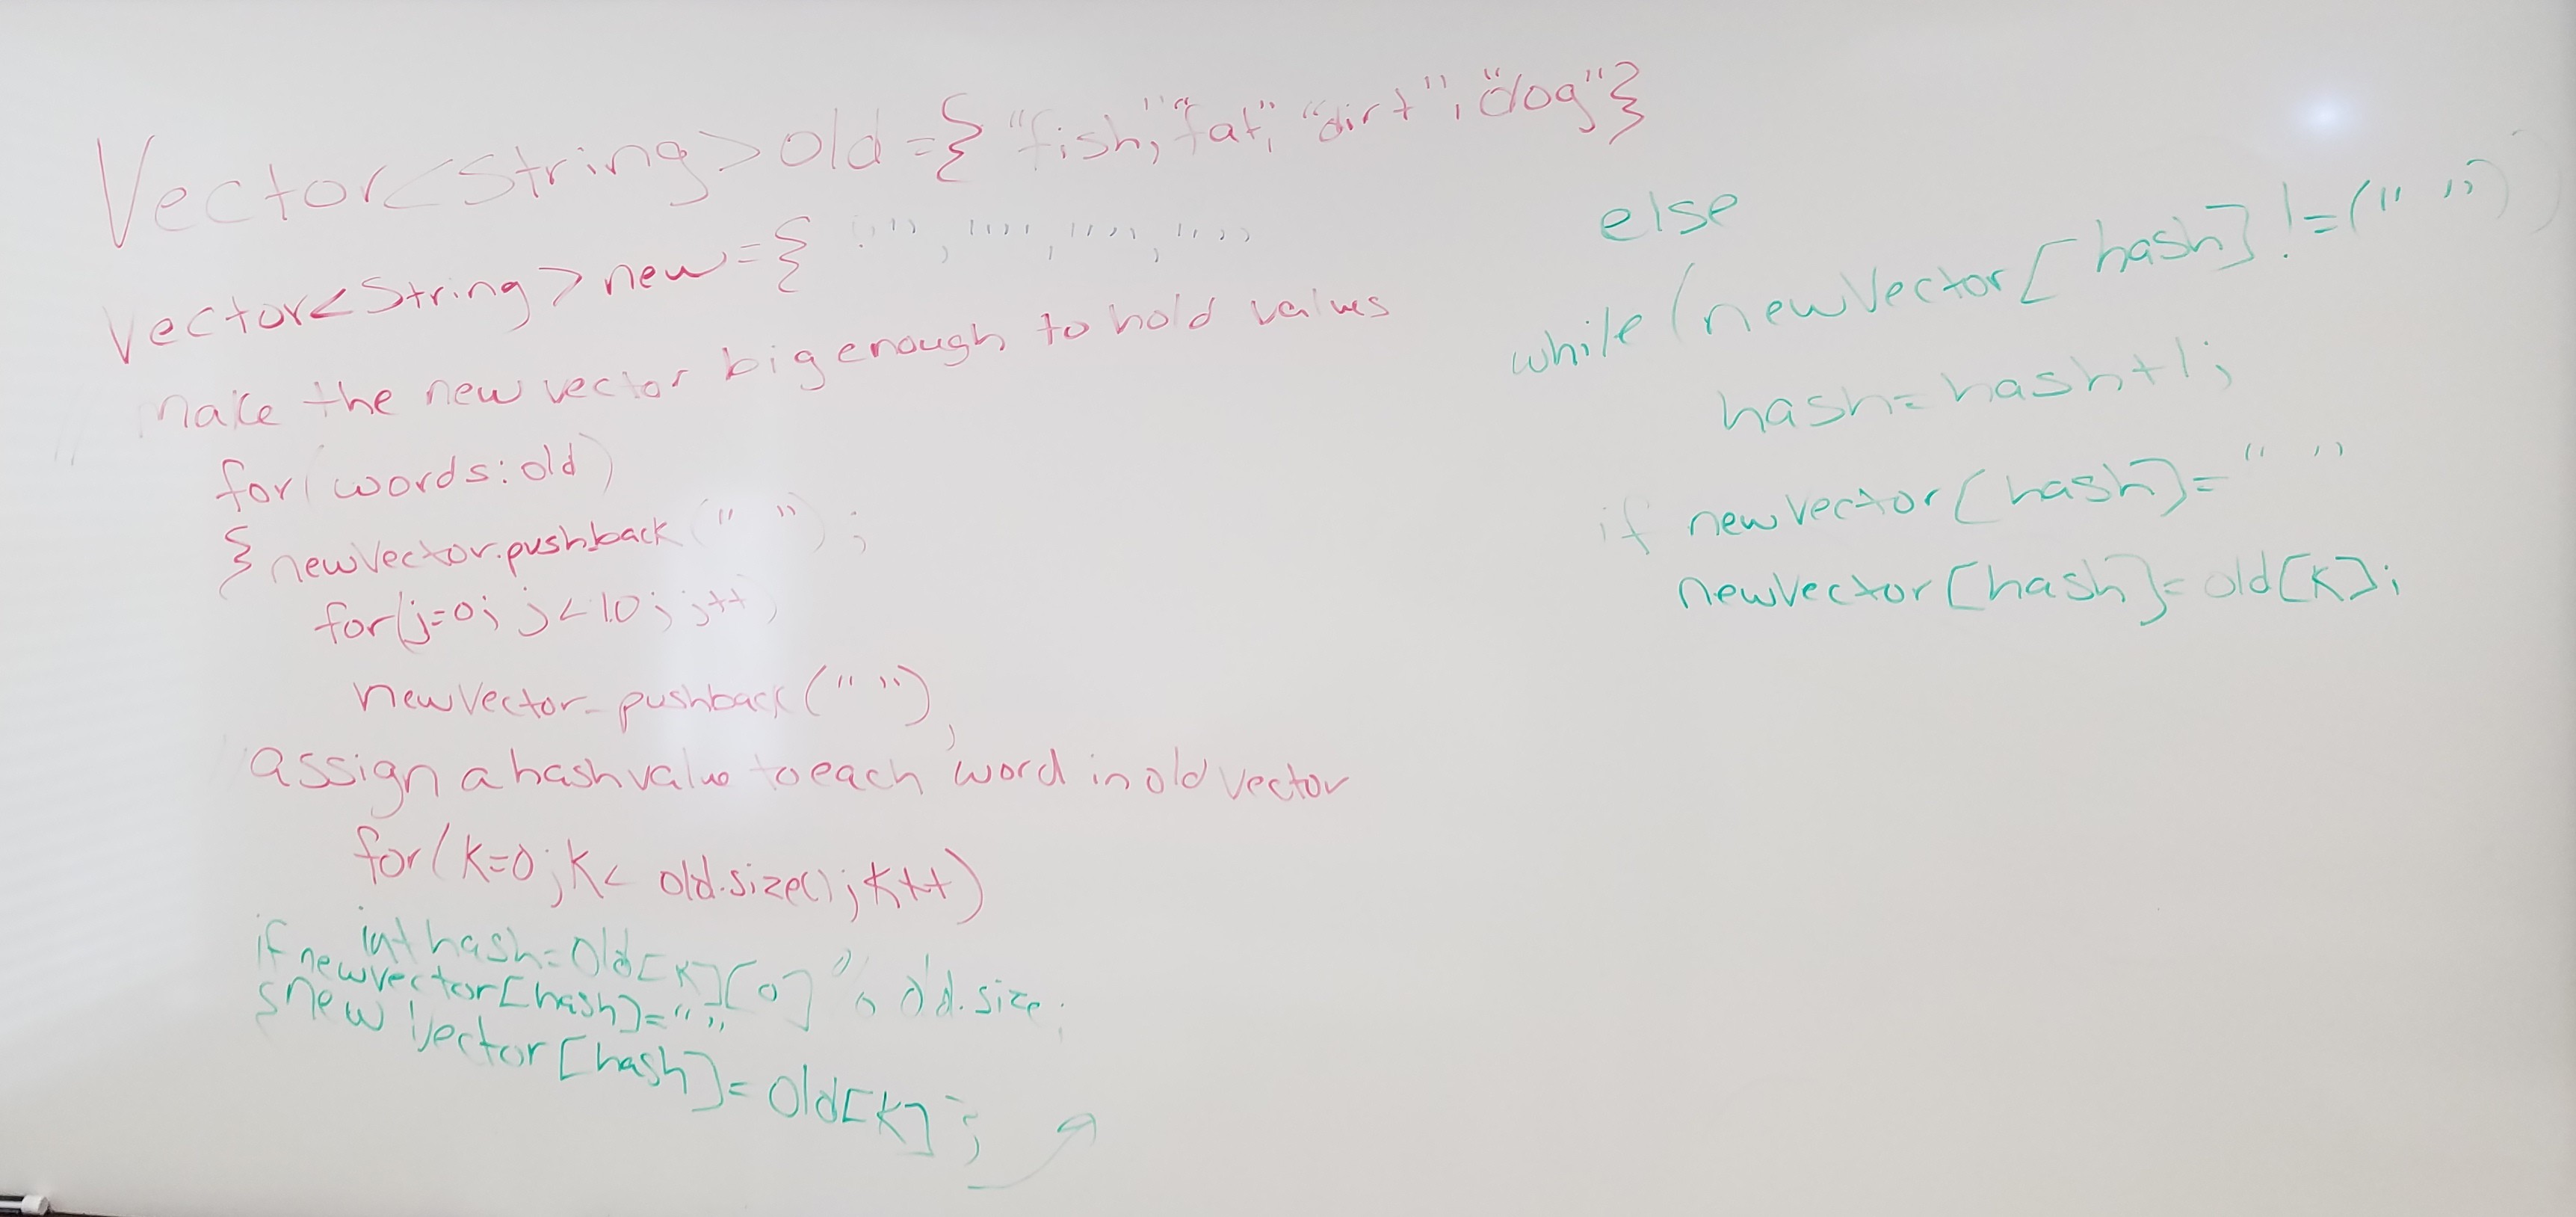 Vector<string>old={"fish","fat","dirt","dog"}
Vector<String>new={"","","",""
make the new vector big enough to hold values
for(words:old)
{newVector.pushback(" ");
for(j=0; j<10; j++)
newVector.pushback(" "),
assign a hash value to each word in old vector
for(k=0;k< old.size();k++)
int hash=Old[k][0] % old.size;
if newvector[hash]=""
{new Vector[hash]=old[k];
else
while(newVector[hash]!=(" "))
hash=hash+1;
if newVector[hash]=" "
newVector[hash]=old[k];